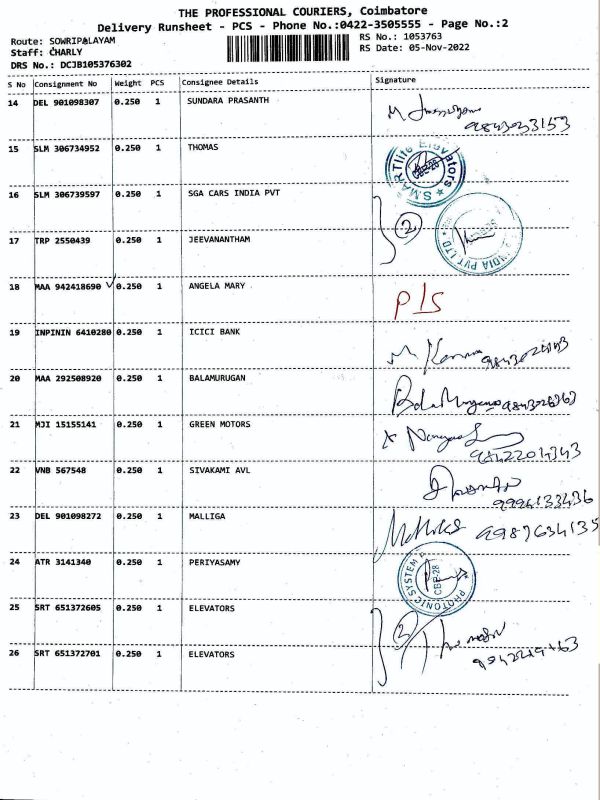 THE PROFESSIONAL COURIERS, Coimbatore
Delivery Runsheet - PCS - Phone No.:0422-3505555 - Page No.:2
Route: SOWRIPALAYAM RS No.: 1053763
Staff: CHARLY RS Date: 05-Nov-2022
DRS No.: DCJB105376302
S No Consignment No Weight PCS Consignee Details Signature
14 DEL 901098307 0.250 1 SUNDARA PRASANTH
15 SLM 306734952 0.250 1 THOMAS SMARTlife Elevators CBE-28
16 SLM 306739597 0.250 1 SGA CARS INDIA PVT 2 INDIA PVT LTD
17 TRP 2550439 0.250 1 JEEVANANTHAM
18 MAA 942418690 0.250 1 ANGELA MARY P/S
19 INPININ 6410280 0.250 1 ICICI BANK
20 MAA 292508920 0.250 1 BALAMURUGAN
21 MJI 15155141 0.250 1 GREEN MOTORS 9842204343
22 VNB 567548 0.250 1 SIVAKAMI AVL 9994133436
23 DEL 901098272 0.250 1 MALLIGA 9989634135
24 ATR 3141340 0.250 1 PERIYASAMY PROTONIC SYSTEM CBE-28
25 SRT 651372605 0.250 1 ELEVATORS 2
26 SRT 651372701 0.250 1 ELEVATORS